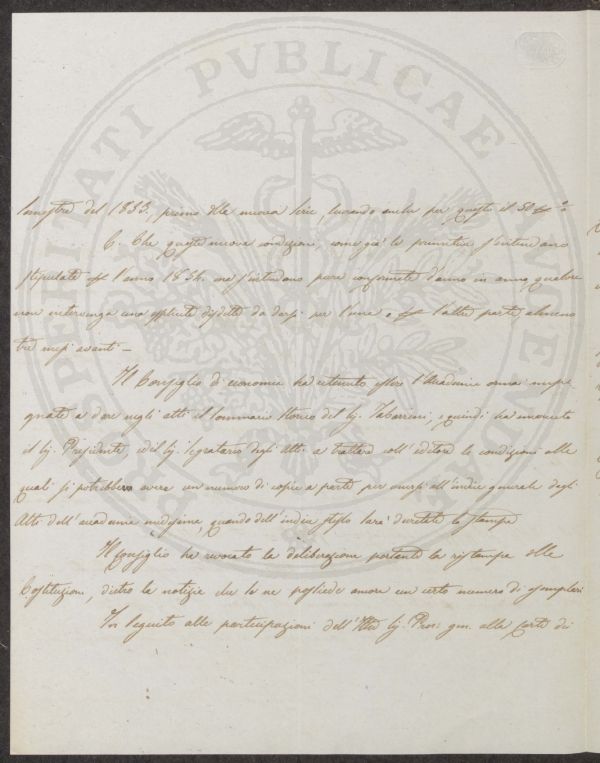 PROSPERITATI PVBLICAE AVGENDAE
del 1853. primo della nuova serie tenendo anche per questo il 50
6. Che queste nuove condizioni, come già le primitive s'intendano
stipulate l'anno 1854. ma s'intendano pure confermate d'anno in anno, qualora
non intervenga una esplicita disdetta da darsi per l'una, o l'altra parte almeno
tre mesi avanti –
Il Consiglio di economia ha ritenuto essere l'Accademia omai impe-
gnata a dare negli Atti il Sommario Storico del Sig. Tabarrini, e quindi ha incaricato
il Sig. Presidente ed il Sig. Segretario degli Atti a trattare coll'editore le condizioni alle
quali si potrebbero avere un numero di copie a parte per unirsi all'indice generale degli
Atti dell'Accademia medesima, quando dell'indice stesso sarà decretata la stampa
Il Consiglio ha revocato la deliberazione portante la ristampa delle
Costituzioni, dietro la notizia che se ne possiede ancora un certo numero di esemplari
In seguito alle partecipazioni dell' Sig. Proc. gen. alla Corte di